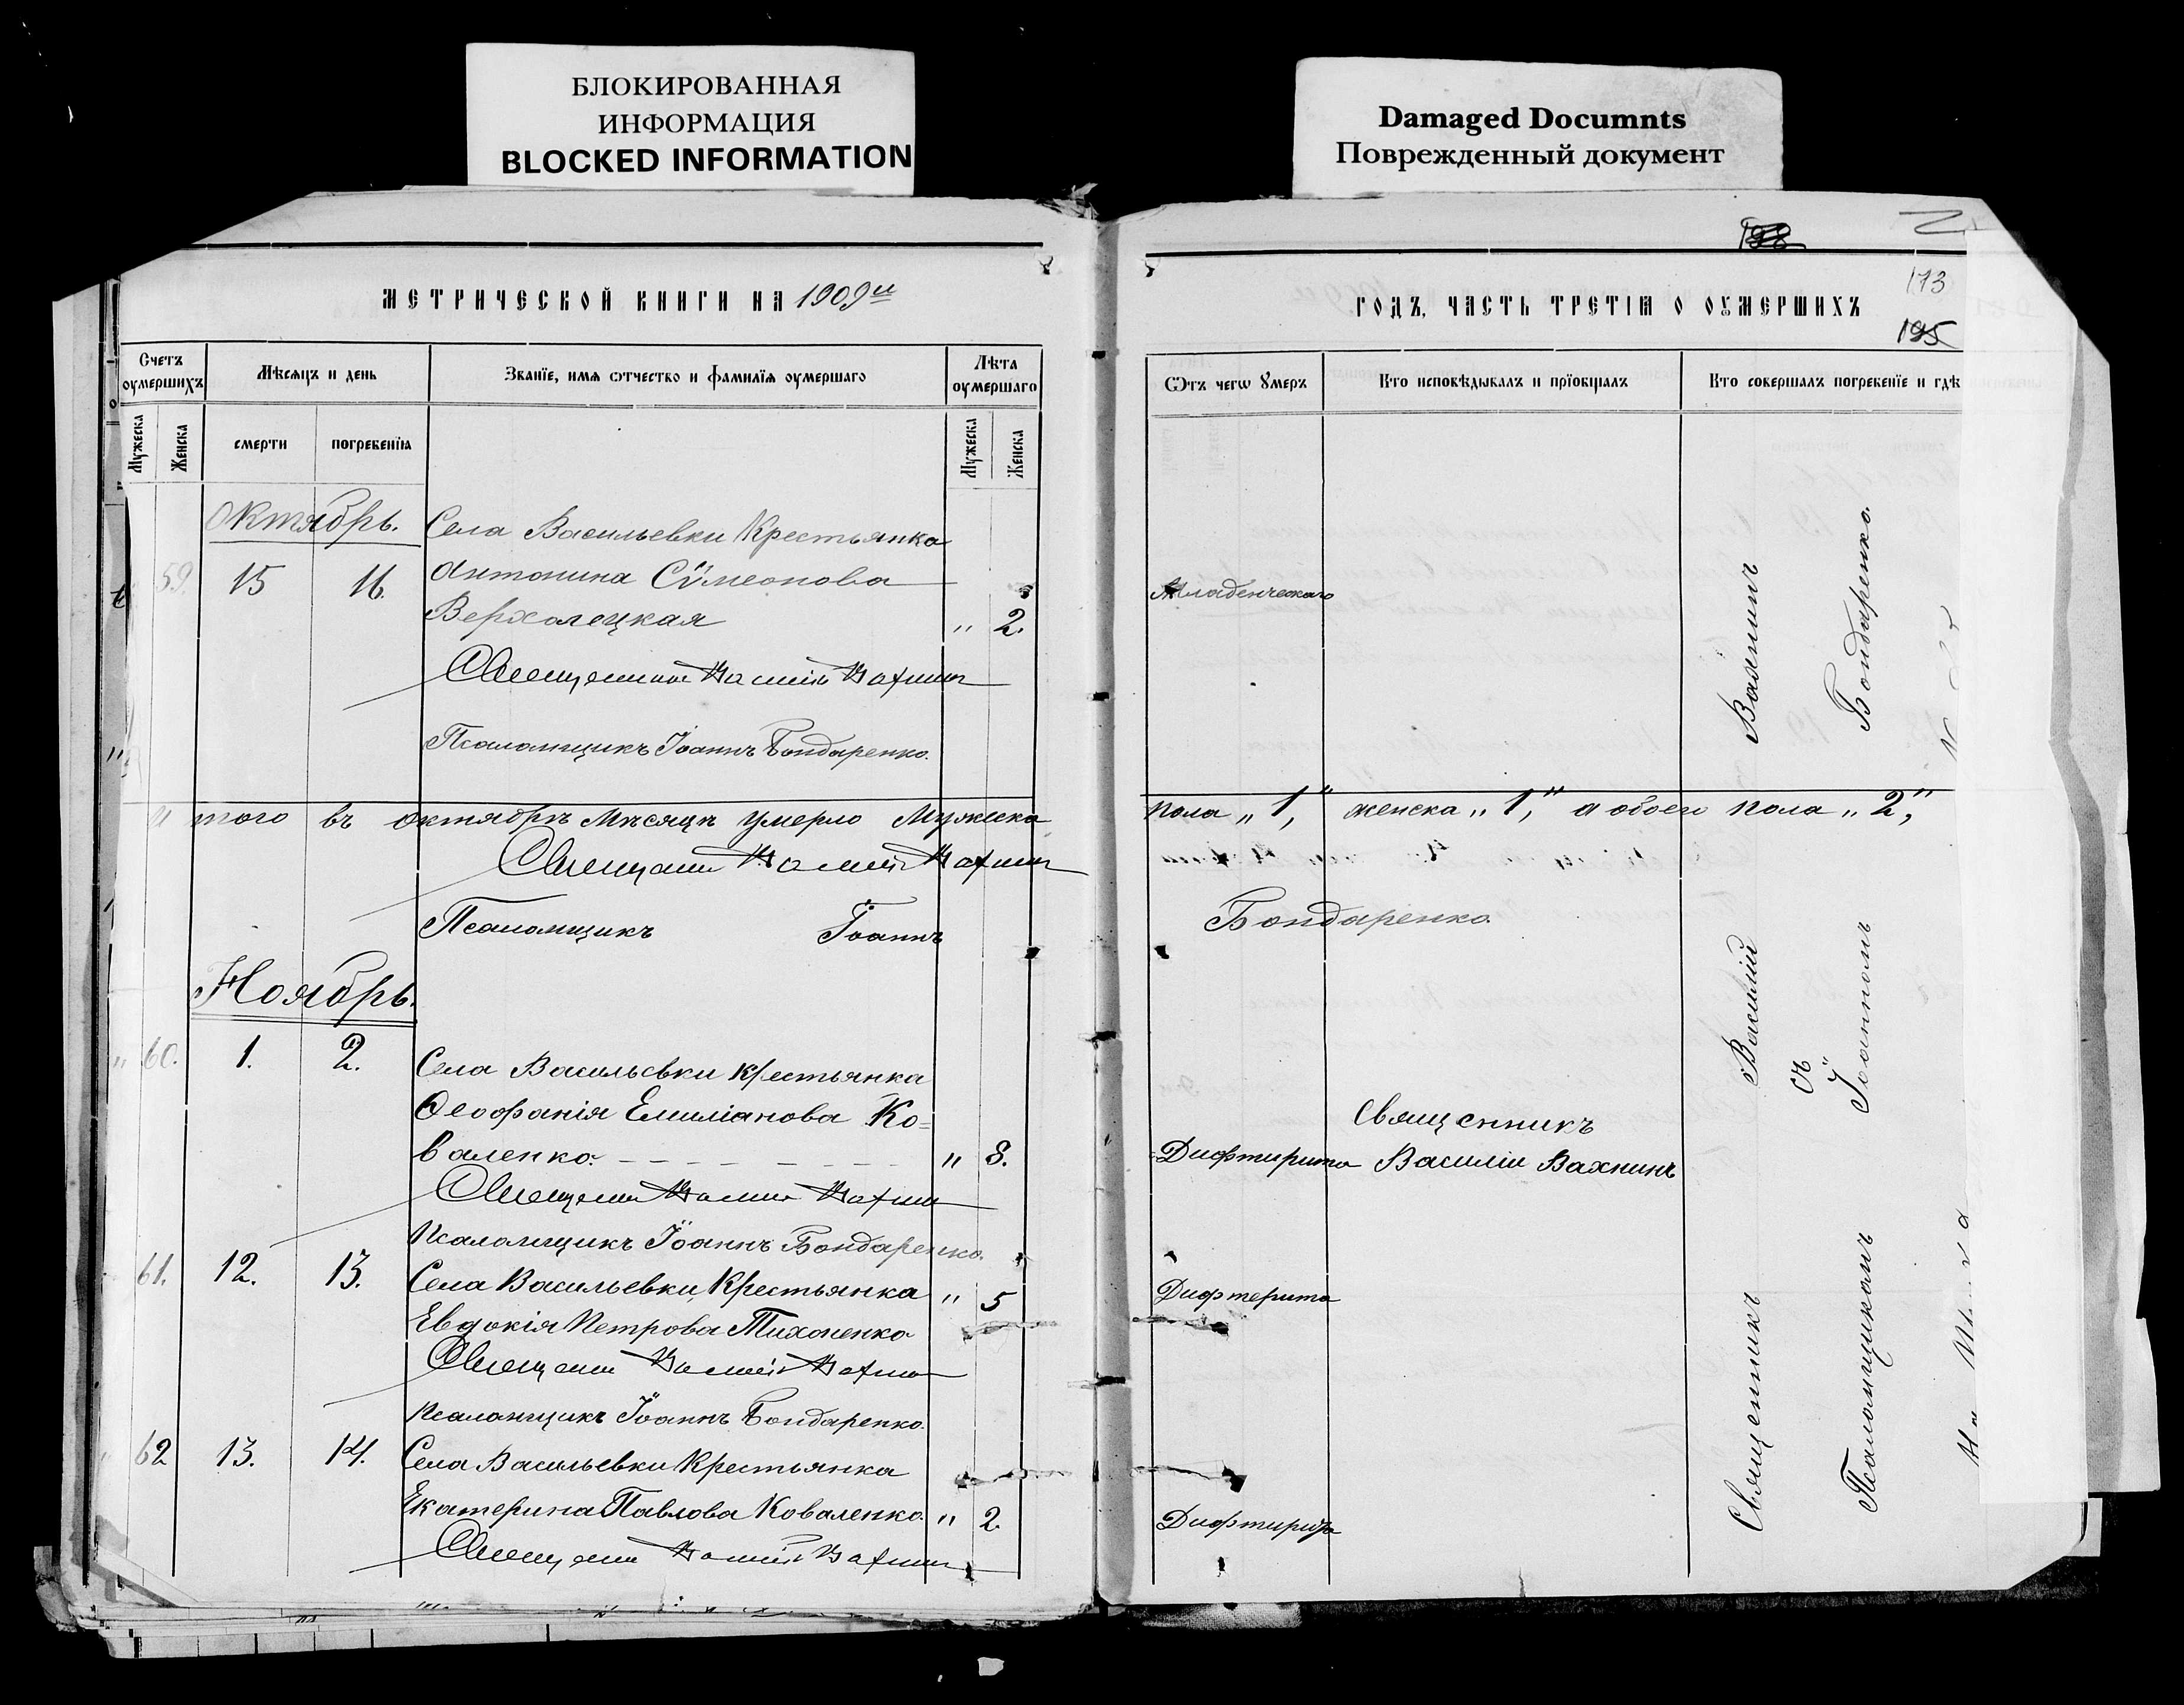 БЛОКИРОВАННАЯ
ИНФОРМАЦИЯ
BLOCKED INFORMATION
Damaged Documnts
Поврежденный документ
МЕТРИЧЕСКОЙ КНИГИ НА 1909й
Счетъ оумершихъ
Мѣсяцъ и день
Званїе, имѧ ѿтчество и фамилїѧ оумершаго
Лѣта оумершаго
Мужеска
Женска
смерти
погребенїѧ
Мужеска
Женска
Октябрь.
59. 15 16. Села Васильевки Крестьянка
Антонина Сѵмеонова
Верхолецкая „ 2.
Священникъ Василій Вахнинъ
Псаломщикъ Іоаннъ Бондаренко.
Итого въ октябрѣ мѣсяцѣ умерло Мужеска
Священникъ Василій Вахнинъ
Псаломщикъ Іоаннъ
Ноябрь.
„ 60. 1. 2. Села Васильевки крестьянка
Ѳеофанія Емиліанова Ко=
валенко. „ 8.
Священникъ Василій Вахнинъ
Псаломщикъ Іоаннъ Бондаренко.
61. 12. 13. Села Васильевки Крестьянка „ 5
Евдокія Петрова Тихоненко
Священникъ Василій Вахнинъ
Псаломщикъ Іоаннъ Бондаренко.
62 13. 14. Села Васильевки Крестьянка
Екатерина Павлова Коваленко. „ 2.
Священникъ Василій Вахнинъ
198
173
195
ГОДЪ, ЧАСТЬ ТРЕТІѦ О ОУМЕРШИХЪ
Ѿтъ чегѡ ꙋмеръ
Кто исповѣдывалъ и прїобщалъ
Кто совершалъ погребенїе и гдѣ
Младенческаго
пола „1," женска „1," а обоего пола „2,"
Бондаренко.
Священникъ
Дифтирита Василій Вахнинъ
Дифтерита
Дифтирита
Священникъ Василій Вахнинъ
съ
Псаломщикомъ Іоанномъ Бондаренко.